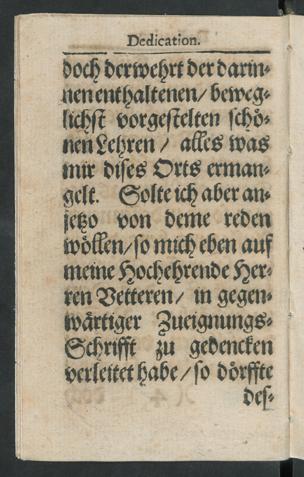 Dedication.
doch der wehrt der darin-
nen enthaltenen/ beweg-
lichst vorgestelten schö-
nen Lehren / alles was
mir dises Orts erman-
gelt. Solte ich aber an-
jetzo von deme reden
wöllen/ so mich eben auf
meine Hochehrende Her-
ren Vetteren/ in gegen-
wärtiger Zueignungs-
Schrifft zu gedencken
verleitet habe/ so dörffte
des-